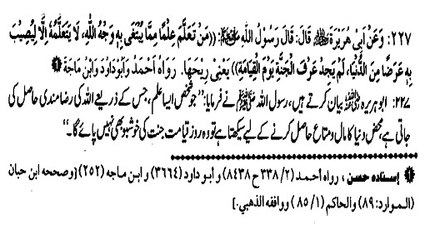 ٢٢٧: وَعَنْ اَبِیْ هُرَيْرَةَ ﷺ قَالَ: قَالَ رَسُوْلُ اللّٰهِ ﷺ: ((مَنْ تَعَلَّمَ عِلْمًا مِمَّا يُبْتَغٰى بِهٖ وَجْهُ اللّٰهِ، لَا يَتَعَلَّمُهٗ اِلَّا لِيُصِيْبَ
بِهٖ عَرَضًا مِنَ الدُّنْيَا، لَمْ يَجِدْ عَرْفَ الْجَنَّةِ يَوْمَ الْقِيَامَةِ)) يَعْنِىْ رِيْحَهَا. رَوَاهُ اَحْمَدُ وَاَبُوْدَاوٗدَ وَابْنُ مَاجَةَ ❶
٢٢٧: ابوہریرہ بیان کرتے ہیں، رسول اللہ ﷺ نے فرمایا: ”جو شخص ایسا علم، جس کے ذریعے اللہ کی رضامندی حاصل کی
جاتی ہے، محض دنیا کا مال و متاع حاصل کرنے کے لیے سیکھتا ہے تو وہ روز قیامت جنت کی خوشبو بھی نہیں پائے گا۔“
❶ إسناده حسن، رواه أحمد (٢/ ٣٣٨ ح ٨٤٣٨) و ابو داود (٣٦٦٤) و ابن ماجه (٢٥٢) [وصححه ابن حبان
(الموارد: ٨٩) والحاكم (١/ ٨٥) ووافقه الذهبي.]